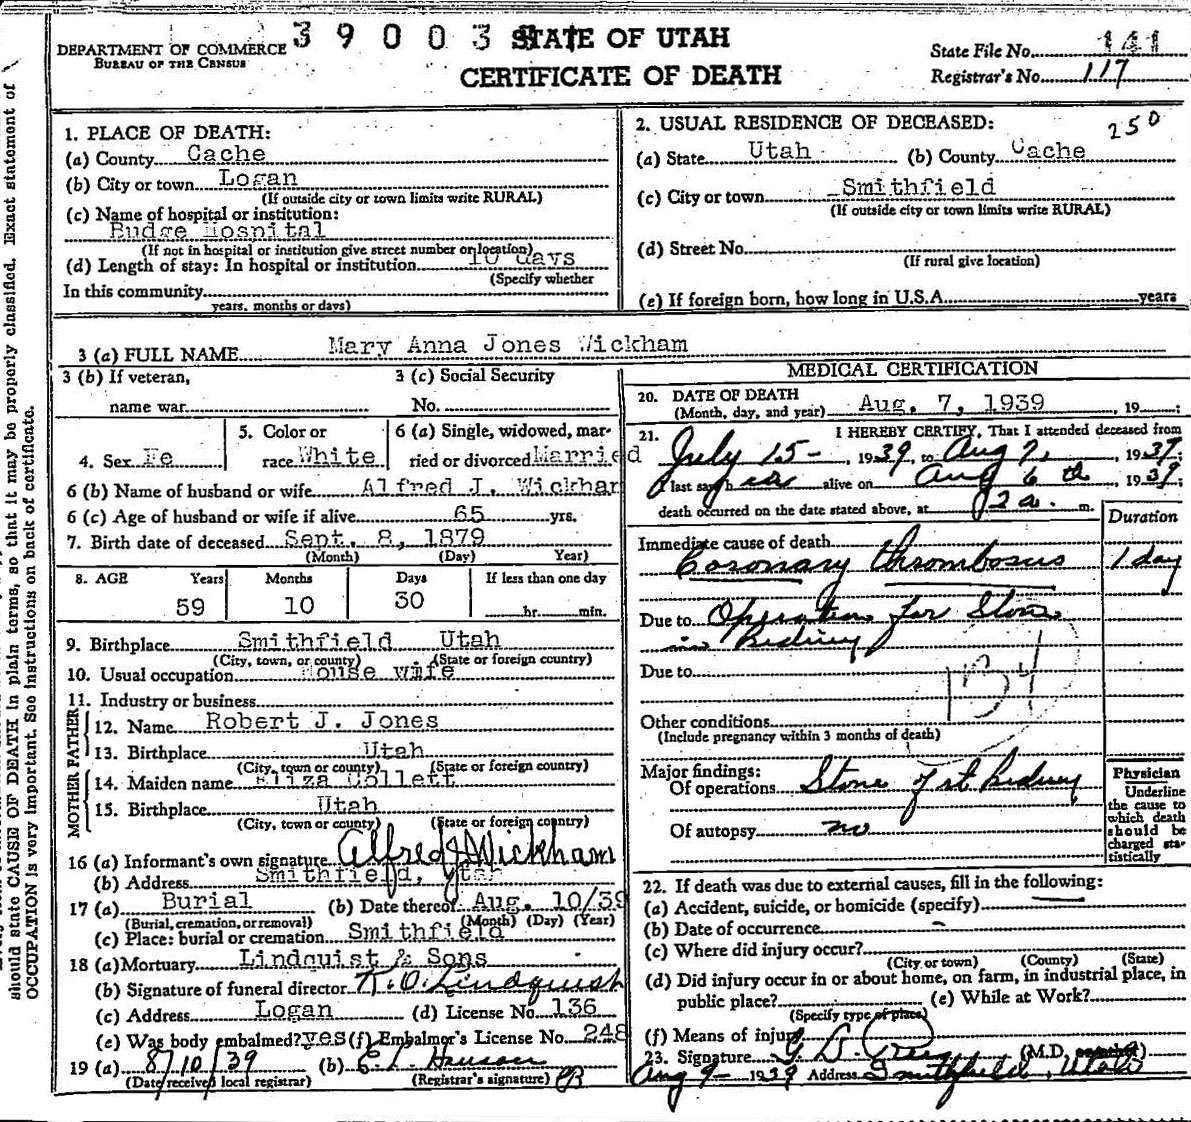 39003
DEPARTMENT OF COMMERCE
BUREAU OF THE CENSUS
STATE OF UTAH
CERTIFICATE OF DEATH
State File No. 141
Registrar's No. 117
1. PLACE OF DEATH:
(a) County Cache
(b) City or town Logan
(If outside city or town limits write RURAL)
(c) Name of hospital or institution:
Budge Hospital
(If not in hospital or institution give street number or location)
(d) Length of stay: In hospital or institution 10 days
(Specify whether
In this community
years, months or days)
2. USUAL RESIDENCE OF DECEASED: 250
(a) State Utah (b) County Cache
(c) City or town Smithfield
(If outside city or town limits write RURAL)
(d) Street No.
(If rural give location)
(e) If foreign born, how long in U.S.A. years
3 (a) FULL NAME Mary Anna Jones Wickham
3 (b) If veteran,
name war
3 (c) Social Security
No.
4. Sex Fe
5. Color or
race White
6 (a) Single, widowed, mar-
ried or divorced Married
6 (b) Name of husband or wife Alfred J. Wickham
6 (c) Age of husband or wife if alive 65 yrs.
7. Birth date of deceased Sept. 8, 1879
(Month) (Day) Year)
8. AGE Years Months Days If less than one day
59 10 30 hr. min.
9. Birthplace Smithfield Utah
(City, town, or county) (State or foreign country)
10. Usual occupation House wife
11. Industry or business
FATHER
12. Name Robert J. Jones
13. Birthplace Utah
(City, town or county) (State or foreign country)
MOTHER
14. Maiden name Eliza Collett
15. Birthplace Utah
(City, town or county) (State or foreign country)
16 (a) Informant's own signature Alfred J Wickham
(b) Address Smithfield, Utah
17 (a) Burial (b) Date thereof Aug. 10/39
(Burial, cremation, or removal) (Month) (Day) (Year)
(c) Place: burial or cremation Smithfield
18 (a) Mortuary Lindquist & Sons
(b) Signature of funeral director K.O. Lindquist
(c) Address Logan (d) License No. 136
(e) Was body embalmed? yes (f) Embalmer's License No. 248
19 (a) 8/10/39 (b) E. L. Hansen
(Date received local registrar) (Registrar's signature)
MEDICAL CERTIFICATION
20. DATE OF DEATH
(Month, day, and year) Aug. 7, 1939, 19 ;
21. I HEREBY CERTIFY, That I attended deceased from
July 15- , 1939, to Aug 7, , 1939;
I last saw her alive on Aug 6 th , 1939;
death occurred on the date stated above, at 2 a. m.
Duration
Immediate cause of death
Coronary thrombosus 1 day
Due to Operation for Stone
in Kidney
Due to
134
Other conditions
(Include pregnancy within 3 months of death)
Major findings:
Of operations Stone of rt kidney
Of autopsy no
Physician
Underline
the cause to
which death
should be
charged sta-
tistically
22. If death was due to external causes, fill in the following:
(a) Accident, suicide, or homicide (specify)
(b) Date of occurrence
(c) Where did injury occur?
(City or town) (County) (State)
(d) Did injury occur in or about home, on farm, in industrial place, in
public place? (e) While at Work?
(Specify type of place)
(f) Means of injury
23. Signature (M.D.
Aug 9- 1939 Address Smithfield, Utah
Exact statement of
so that it may be properly classified.
should state CAUSE OF DEATH in plain terms,
OCCUPATION is very important. See instructions on back of certificate.